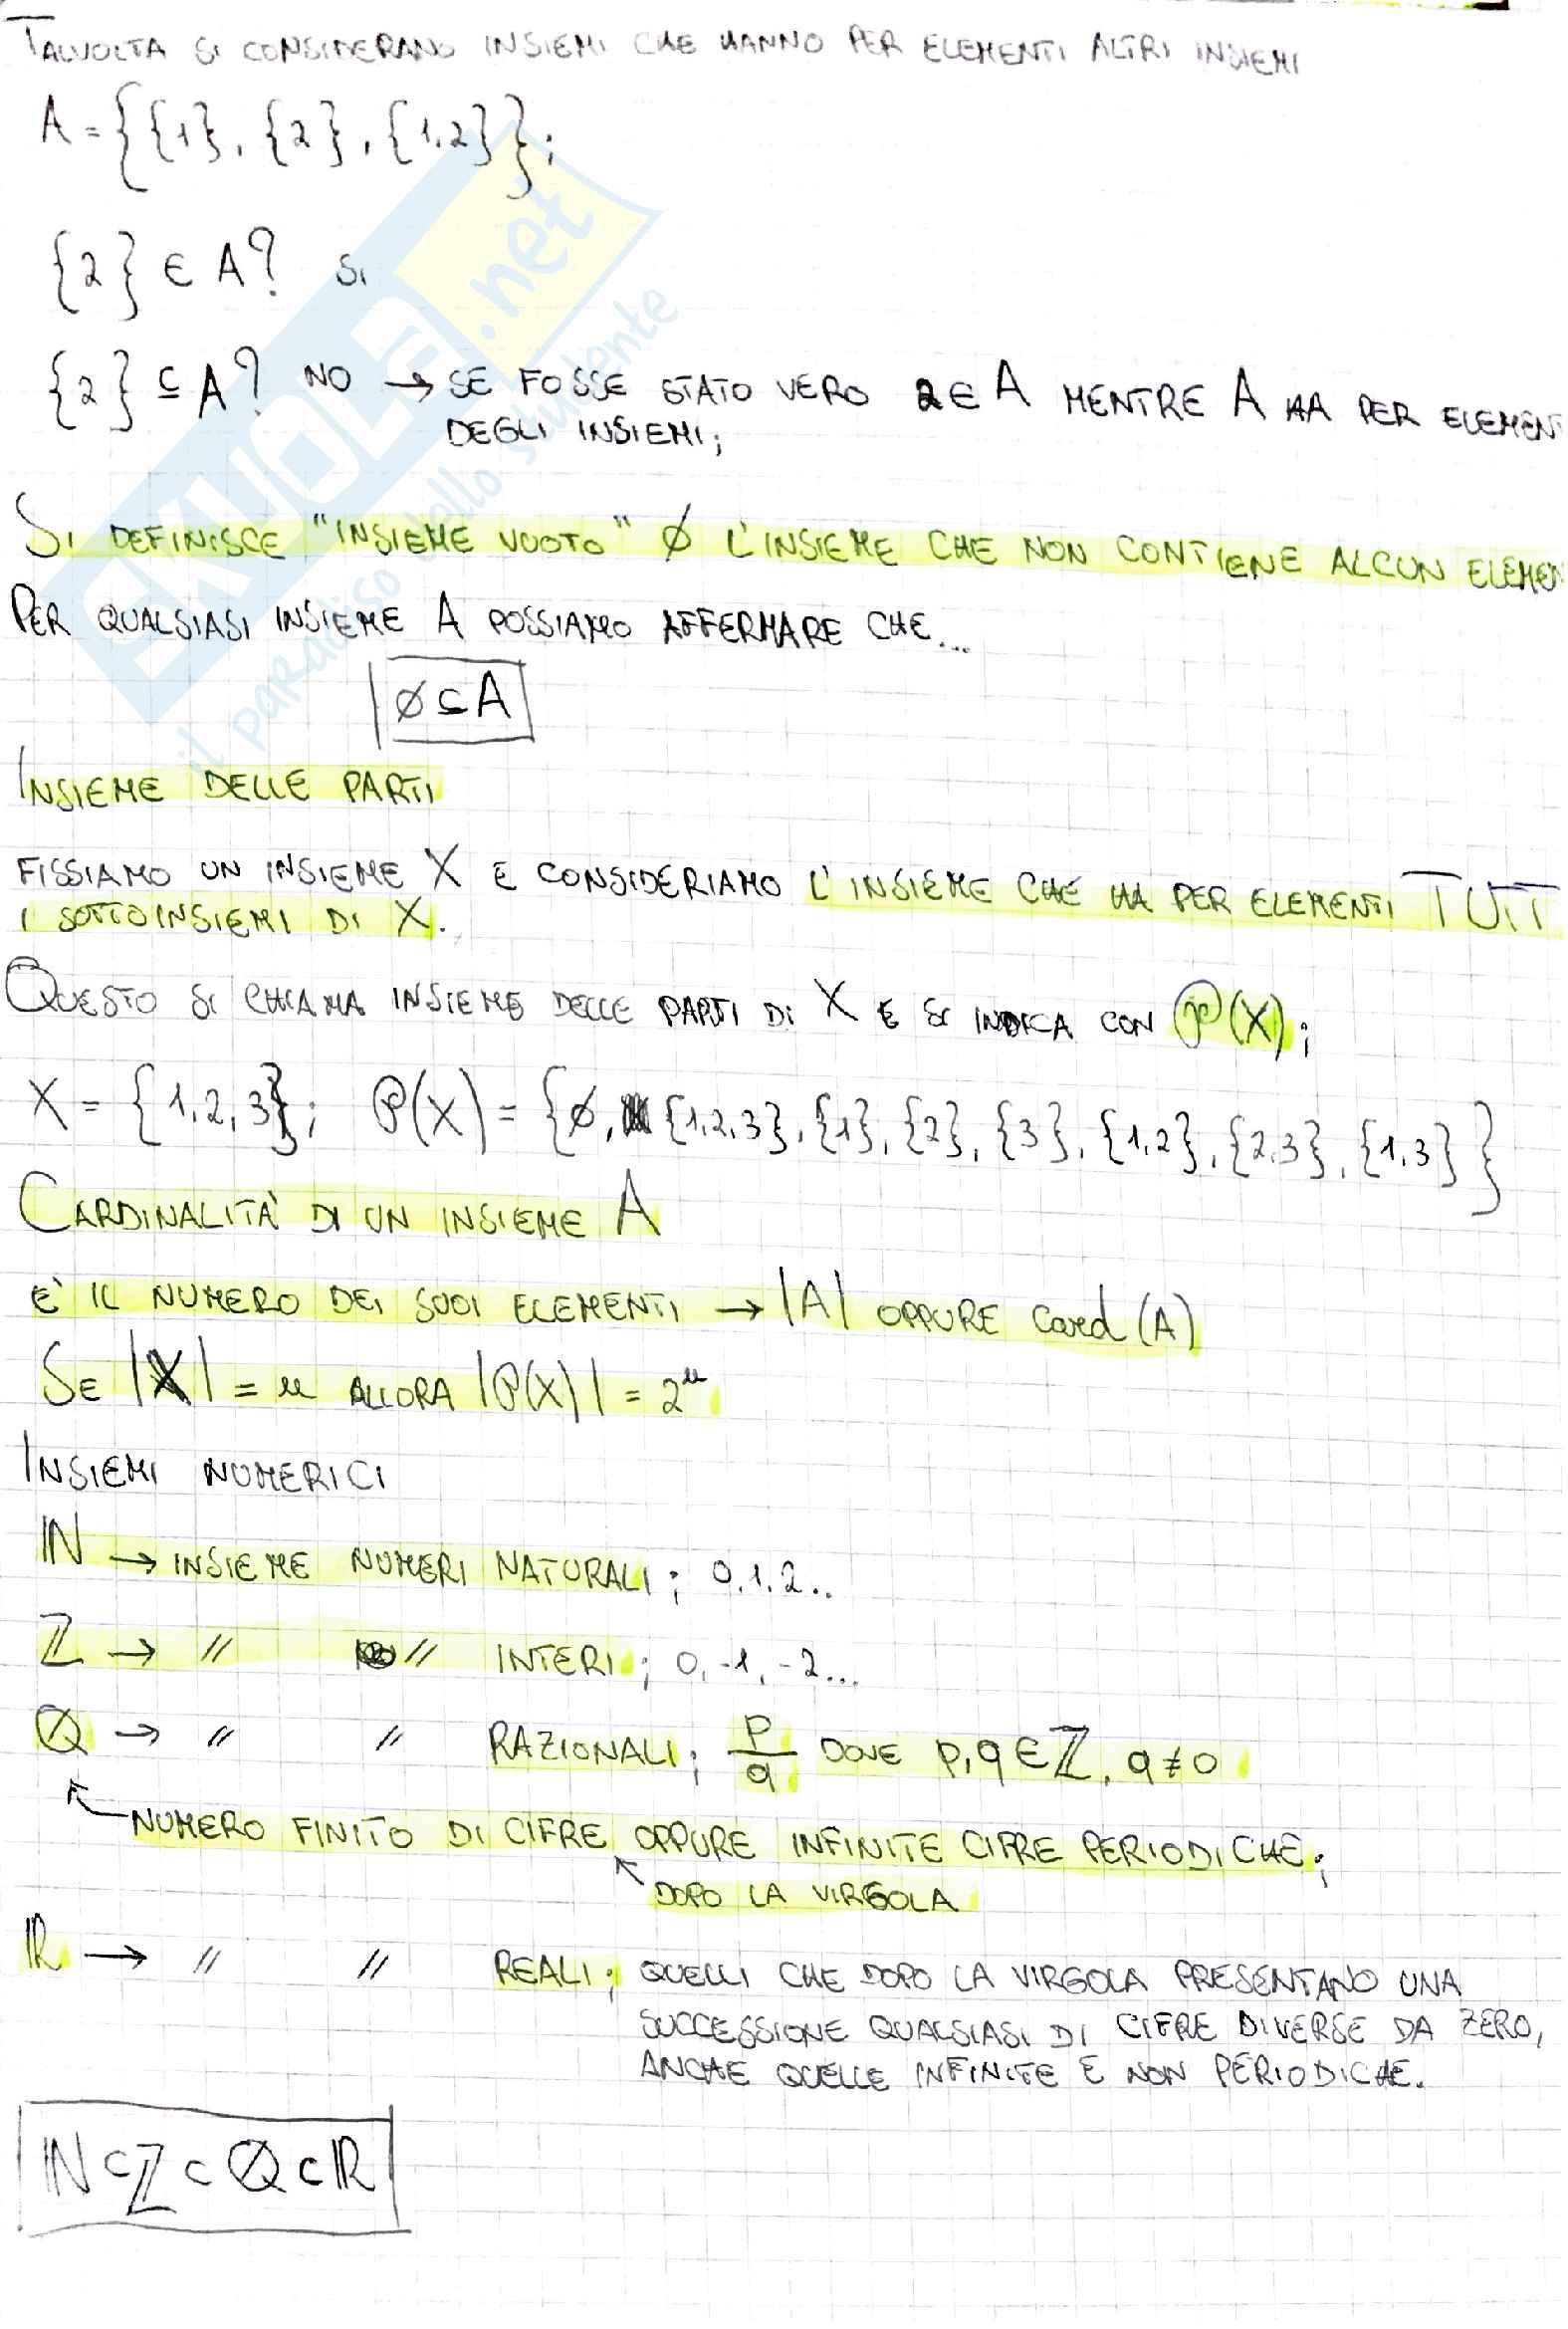 TALVOLTA SI CONSIDERANO INSIEMI CHE HANNO PER ELEMENTI ALTRI INSIEMI
A = {{1}, {2}, {1,2}};
{2} ∈ A? SI
{2} ⊆ A? NO → SE FOSSE STATO VERO 2 ∈ A MENTRE A HA PER ELEMEN
DEGLI INSIEMI;
SI DEFINISCE "INSIEME VUOTO" Ø L'INSIEME CHE NON CONTIENE ALCUN ELEMEN
PER QUALSIASI INSIEME A POSSIAMO AFFERMARE CHE...
Ø ⊆ A
INSIEME DELLE PARTI
FISSIAMO UN INSIEME X E CONSIDERIAMO L'INSIEME CHE HA PER ELEMENTI TUTT
I SOTTOINSIEMI DI X.
QUESTO SI CHIAMA INSIEME DELLE PARTI DI X E SI INDICA CON P(X);
X = {1,2,3}; P(X) = {Ø, {1,2,3}, {1}, {2}, {3}, {1,2}, {2,3}, {1,3}}
CARDINALITÀ DI UN INSIEME A
È IL NUMERO DEI SUOI ELEMENTI → |A| OPPURE Card(A)
SE |X| = n ALLORA |P(X)| = 2ⁿ
INSIEMI NUMERICI
ℕ → INSIEME NUMERI NATURALI; 0,1,2..
ℤ → // // INTERI; 0,-1,-2...
ℚ → // // RAZIONALI; p/q DOVE p,q ∈ ℤ, q ≠ 0
NUMERO FINITO DI CIFRE OPPURE INFINITE CIFRE PERIODICHE;
DOPO LA VIRGOLA
ℝ → // // REALI; QUELLI CHE DOPO LA VIRGOLA PRESENTANO UNA
SUCCESSIONE QUALSIASI DI CIFRE DIVERSE DA ZERO,
ANCHE QUELLE INFINITE E NON PERIODICHE.
ℕ ⊂ ℤ ⊂ ℚ ⊂ ℝ
SKUOLA.net
il paradiso dello studente